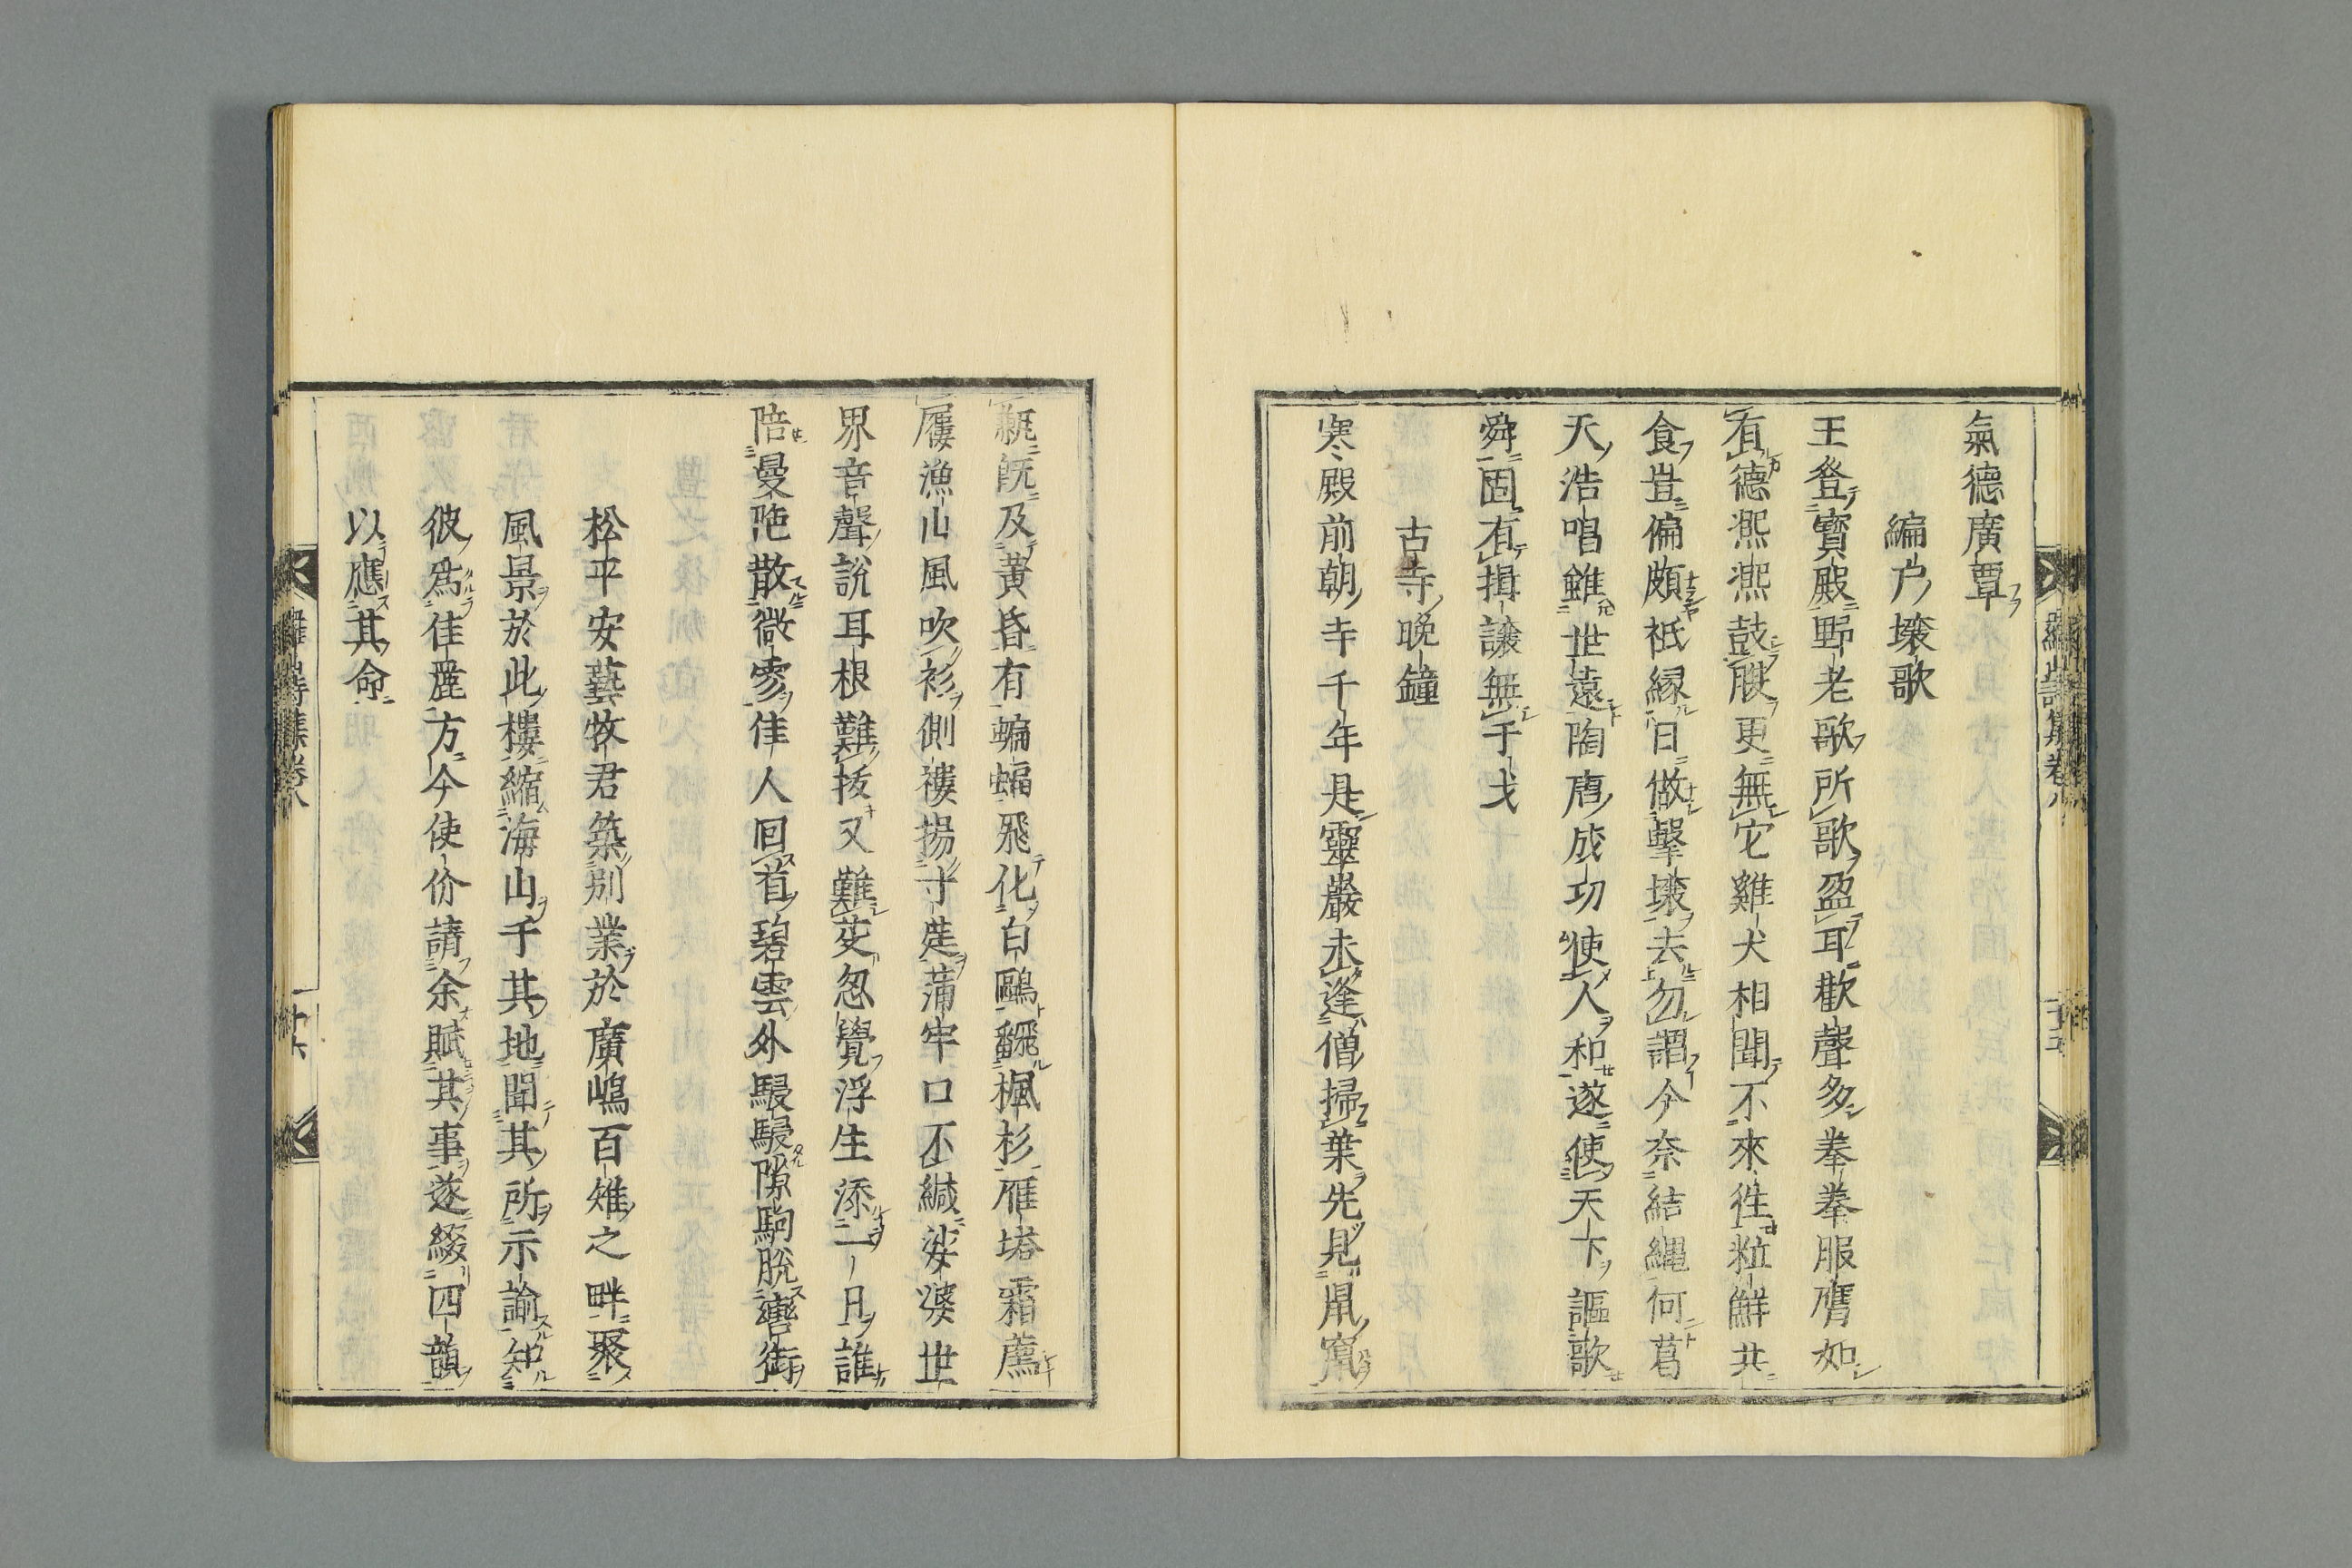 氣德廣覃
編戶壤歌
王登寶殿野老歌所歌盈耳歡聲多拳拳服膺如
有德熙熙鼓腹更無它雞犬相聞不來往粒鮮共
食豈偏頗祇緣日做擊壤去勿謂今奈結繩何葛
天浩唱雖世遠陶唐成功使人和遂使天下謳歌
舜固有揖讓無干戈
古寺晚鐘
寒殿前朝寺千年是靈巖未逢僧掃葉先見鼠竄
甎既及黃昏有蝙蝠飛化白鷗翻楓杉雁塔霜薦
屨漁山風吹衫側褸揚寸莛蒲牢口不緘娑婆世
界音聲說耳根難拔又難芟忽覺浮生添一日誰
陪曼陁散微雪佳人回首碧雲外駸駸隙駒脫轡銜
松平安藝牧君築別業於廣嶋百雉之畔聚
風景於此樓縮海山千其地聞其所示諭知
彼爲佳麗方今使价請余賦其事遂綴四韻
以應其命
羅山詩集卷八
二十五
羅山詩集卷八
二十六